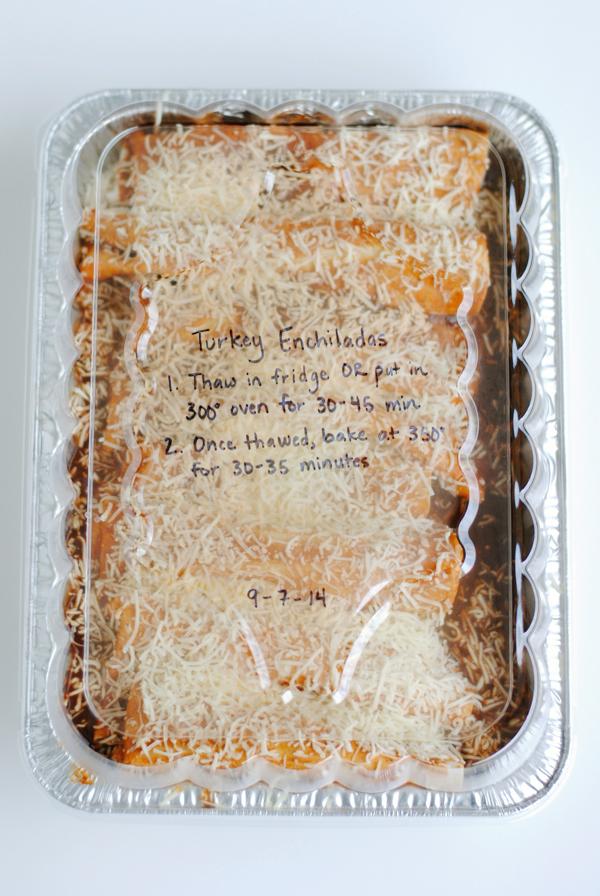 Turkey Enchiladas
1. Thaw in fridge OR put in
300° oven for 30-45 min
2. Once thawed, bake at 350°
for 30-35 minutes
9-7-14